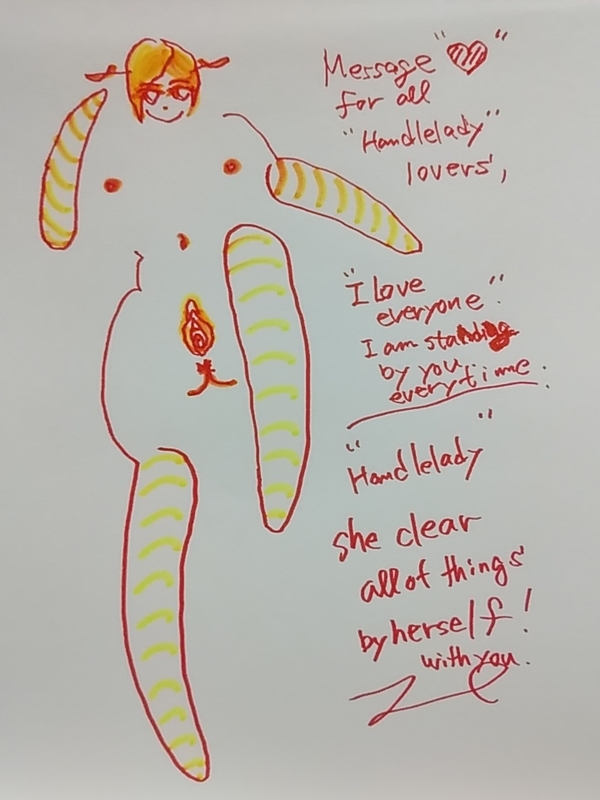 Message "♡"
for all
"Handlelady"
lovers,
"I love
everyone".
I am standing
by you
everytime.
"Handlelady"
she clear
all of things
by herself!
with you.